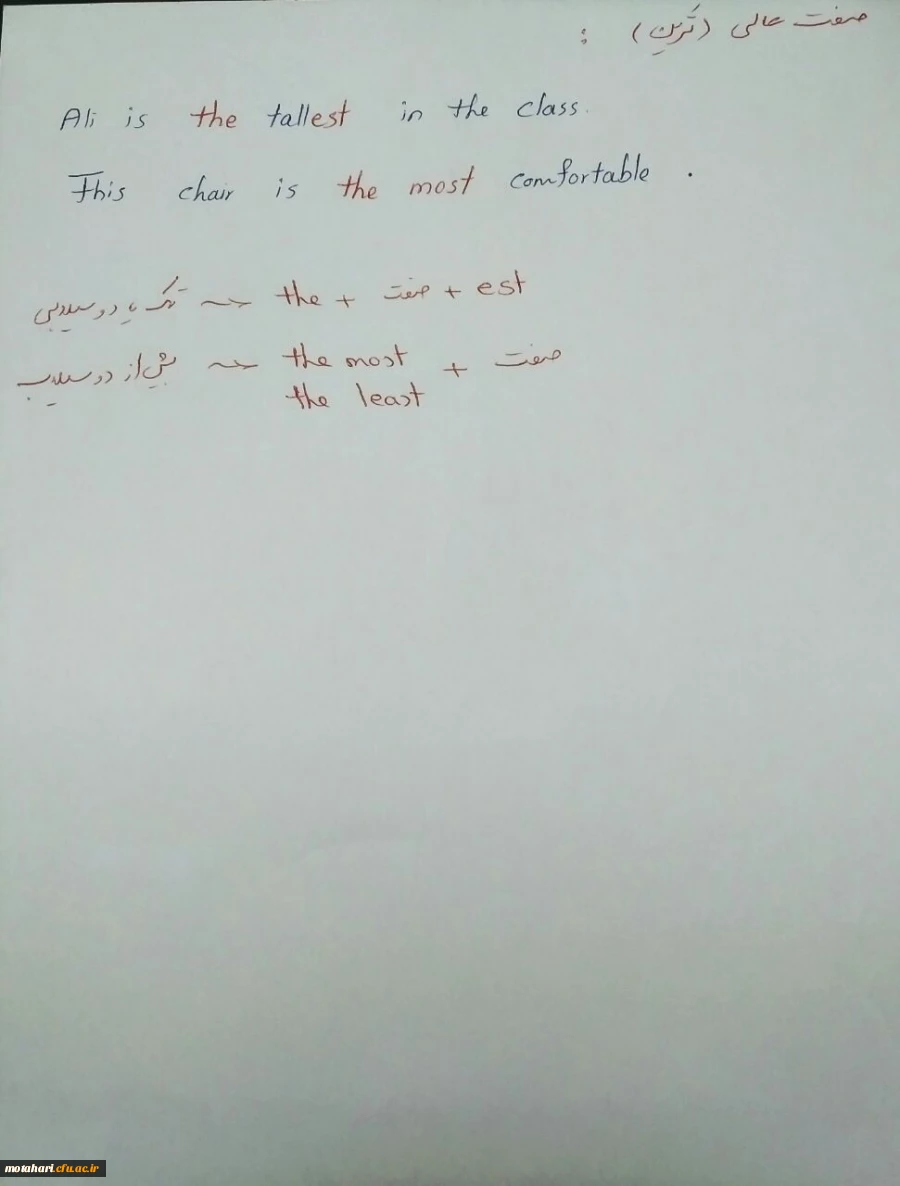 صفت عالی (ترین) :
Ali is the tallest in the class.
This chair is the most comfortable .
تک یا دو سیلابی ~> the + صفت + est
بیش از دو سیلاب ~> the most + صفت
the least
motahari.cfu.ac.ir